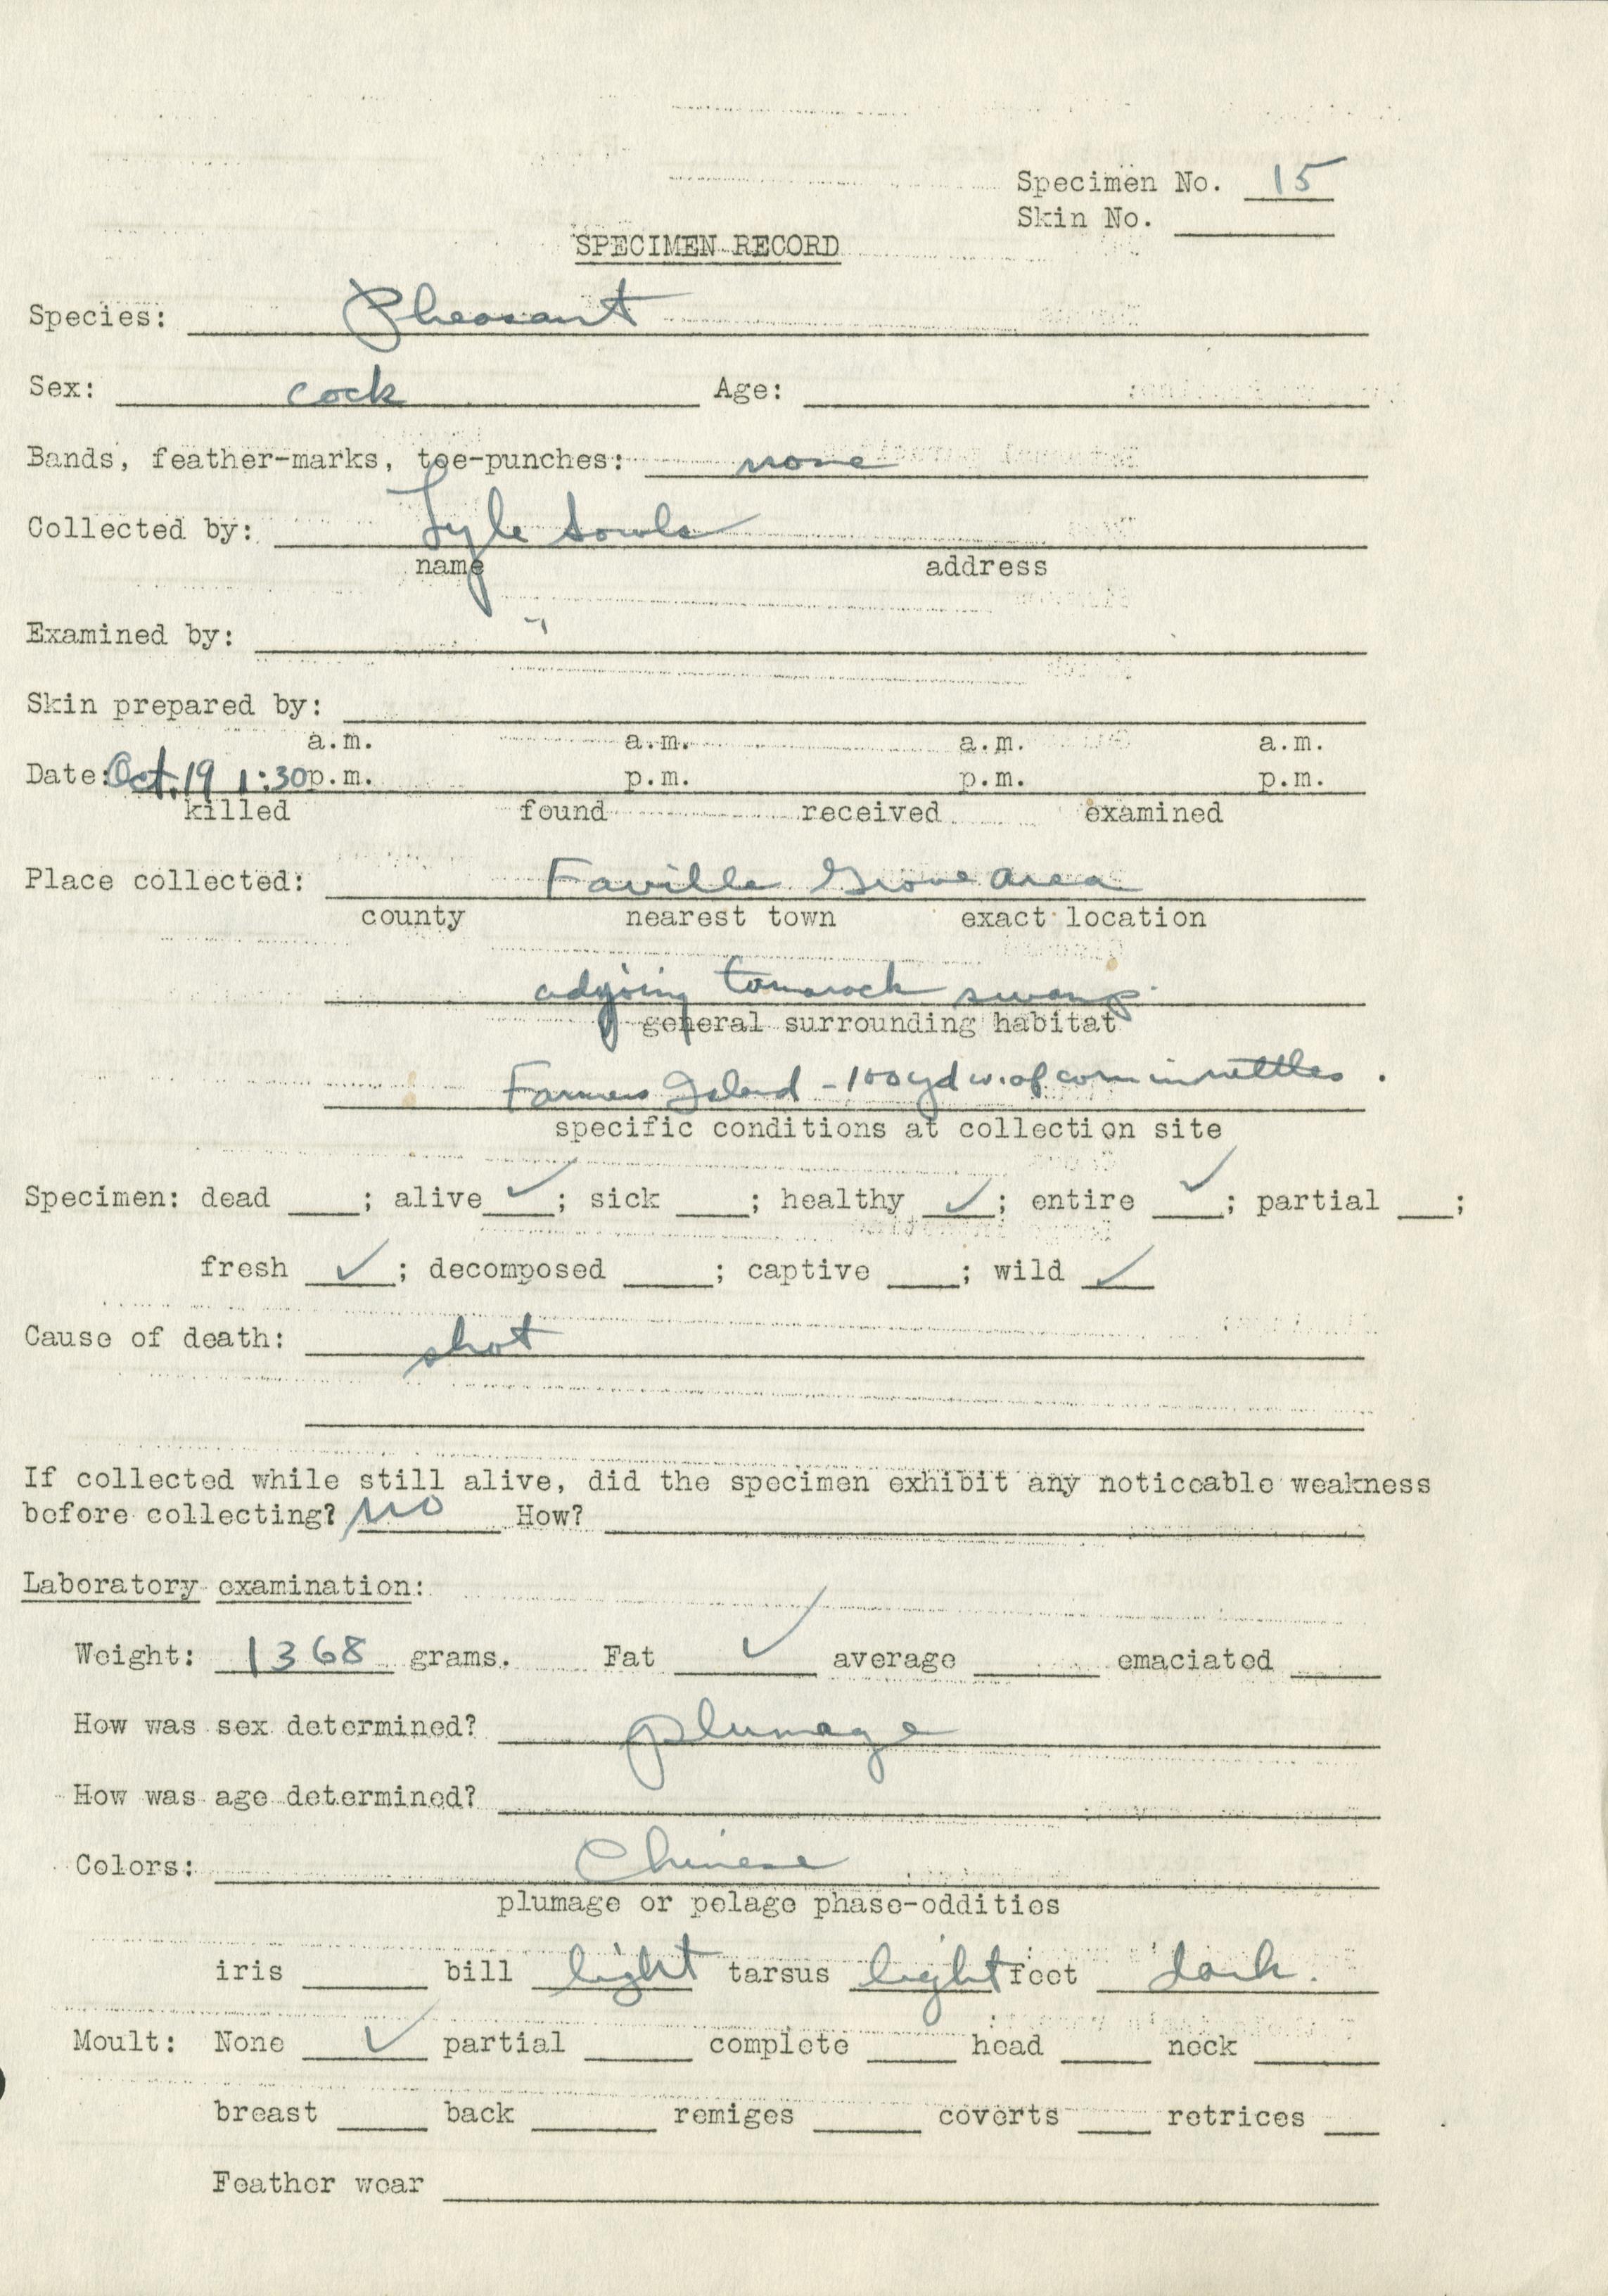 Specimen No. 15
Skin No. ____
SPECIMEN RECORD
Species: Pheasant
Sex: cock Age: ____
Bands, feather-marks, toe-punches: none
Collected by: Lyle Sowls
name address
Examined by: "
Skin prepared by: ____
a.m. a.m. a.m. a.m.
Date: Oct. 19 1:30 p.m. p.m. p.m. p.m.
killed found received examined
Place collected: Faville Grove Area
county nearest town exact location
adjoing tamarack swamp.
general surrounding habitat
Farmers Island - 100 yd w. of corn in nettles.
specific conditions at collection site
Specimen: dead ____; alive ✓; sick ____; healthy ✓; entire ✓; partial ____;
fresh ✓; decomposed ____; captive ____; wild ✓
Cause of death: shot
If collected while still alive, did the specimen exhibit any noticeable weakness
before collecting? no How? ____
Laboratory examination:
Weight: 1368 grams. Fat ✓ average ____ emaciated ____
How was sex determined? plumage
How was age determined? ____
Colors: Chinese
plumage or pelage phase-oddities
iris ____ bill light tarsus light foot dark.
Moult: None ✓ partial ____ complete ____ head ____ neck ____
breast ____ back ____ remiges ____ coverts ____ retrices ____
Feather wear ____